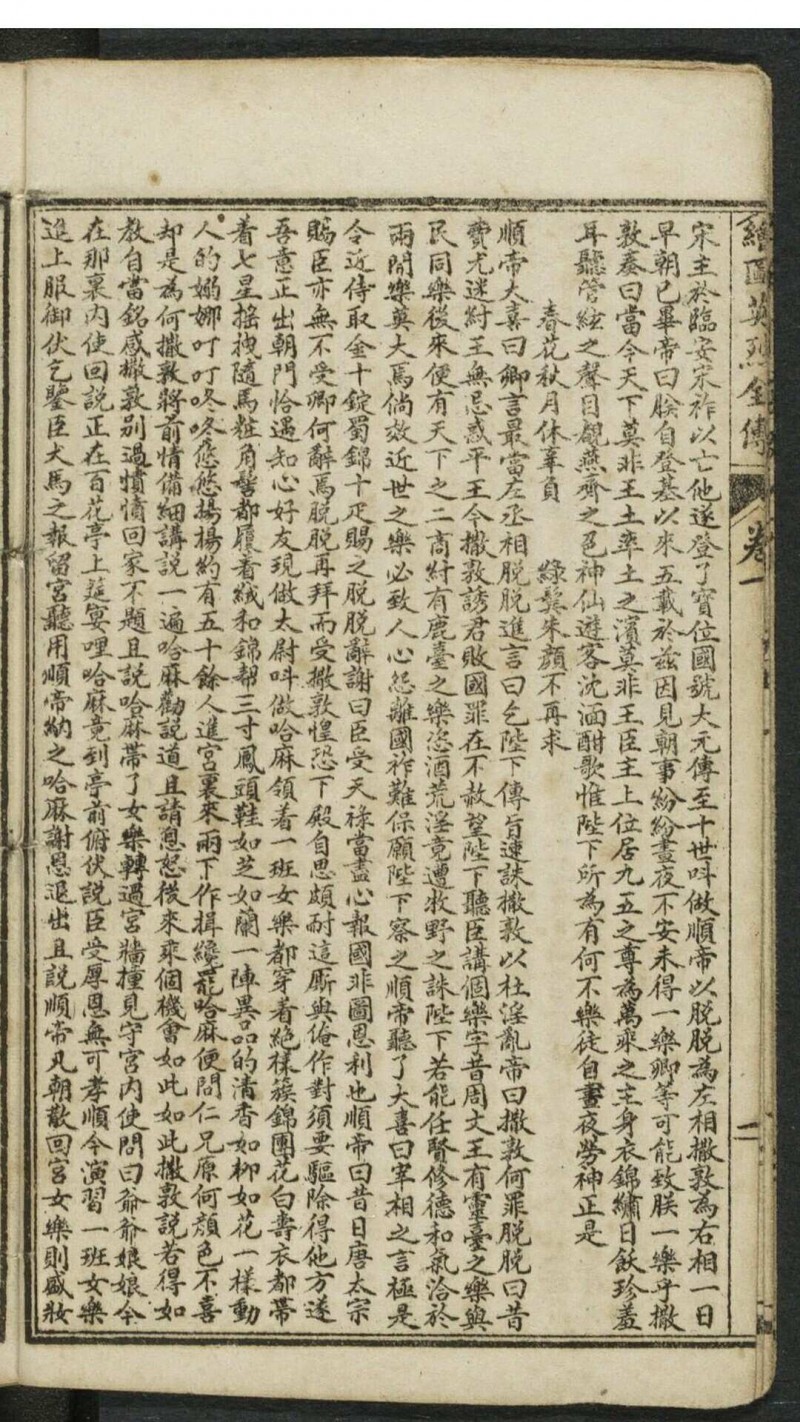 繪圖英烈全傳 卷一 二
宋主於臨安宋祚以亡他遂登了寶位國號大元傳至十世叫做順帝以脫脫為左相撒敦為右相一日
早朝已畢帝曰朕自登基以來五載於茲因見朝事紛紛晝夜不安未得一樂卿等可能致朕一樂乎撒
敦奏曰當今天下莫非王土率土之濱莫非王臣主上位居九五之尊為萬乘之主身衣錦繡日飫珍羞
耳聽管絃之聲目覩燕齊之色神仙遊客沈湎酣歌惟陛下所為有何不樂徒自晝夜勞神正是
春花秋月休辜負 綠鬢朱顏不再求
順帝大喜曰卿言最當左丞相脫脫進言曰乞陛下傳旨速誅撒敦以杜淫亂帝曰撒敦何罪脫脫曰昔
費尤迷紂王無忌惑平王今撒敦誘君敗國罪在不赦望陛下聽臣講個樂字昔周文王有靈臺之樂與
民同樂後來便有天下之二商紂有鹿臺之樂恣酒荒淫竟遭牧野之誅陛下若能任賢修德和氣洽於
兩間樂莫大焉倘效近世之樂必致人心怨離國祚難保願陛下察之順帝聽了大喜曰宰相之言極是
令近侍取金十錠蜀錦十疋賜之脫脫辭謝曰臣受天祿當盡心報國非圖恩利也順帝曰昔日唐太宗
賜臣亦無不受卿何辭焉脫脫再拜而受撒敦惶恐下殿自思頗耐這厮與俺作對須要驅除得他方遂
吾意正出朝門恰遇知心好友現做太尉叫做哈麻領着一班女樂都穿着絕樣簇錦團花白壽衣都帶
着七星搖拽隨馬粧角髻都履着絨和錦幫三寸鳳頭鞋如芝如蘭一陣異品的清香如柳如花一樣動
人的嫋娜叮叮咚咚悠悠揚揚約有五十餘人進宮裏來兩下作揖纔罷哈麻便問仁兄原何顏色不喜
却是為何撒敦將前情備細講說一遍哈麻勸說道且請息怒後來乘個機會如此如此撒敦說若得如
教自當銘感撒敦別過憤憤回家不題且說哈麻帶了女樂轉過宮牆撞見守宮內使問曰爺爺娘娘今
在那裏內使回說正在百花亭上筵宴哩哈麻竟到亭前俯伏說臣受厚恩無可孝順今演習一班女樂
進上服御伏乞鑒臣犬馬之報留宮聽用順帝納之哈麻謝恩退出且說順帝凡朝散回宮女樂則盛妝